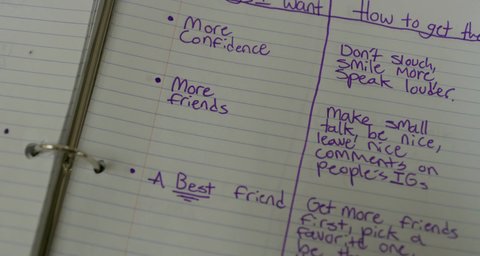 I want How to get the
• More
Confidence
Don't slouch,
smile more,
speak louder.
• More
friends
Make small
talk, be nice,
leave nice
comments on
people's IGs
• A Best friend
Get more friends
first, pick a
favorite one,
be